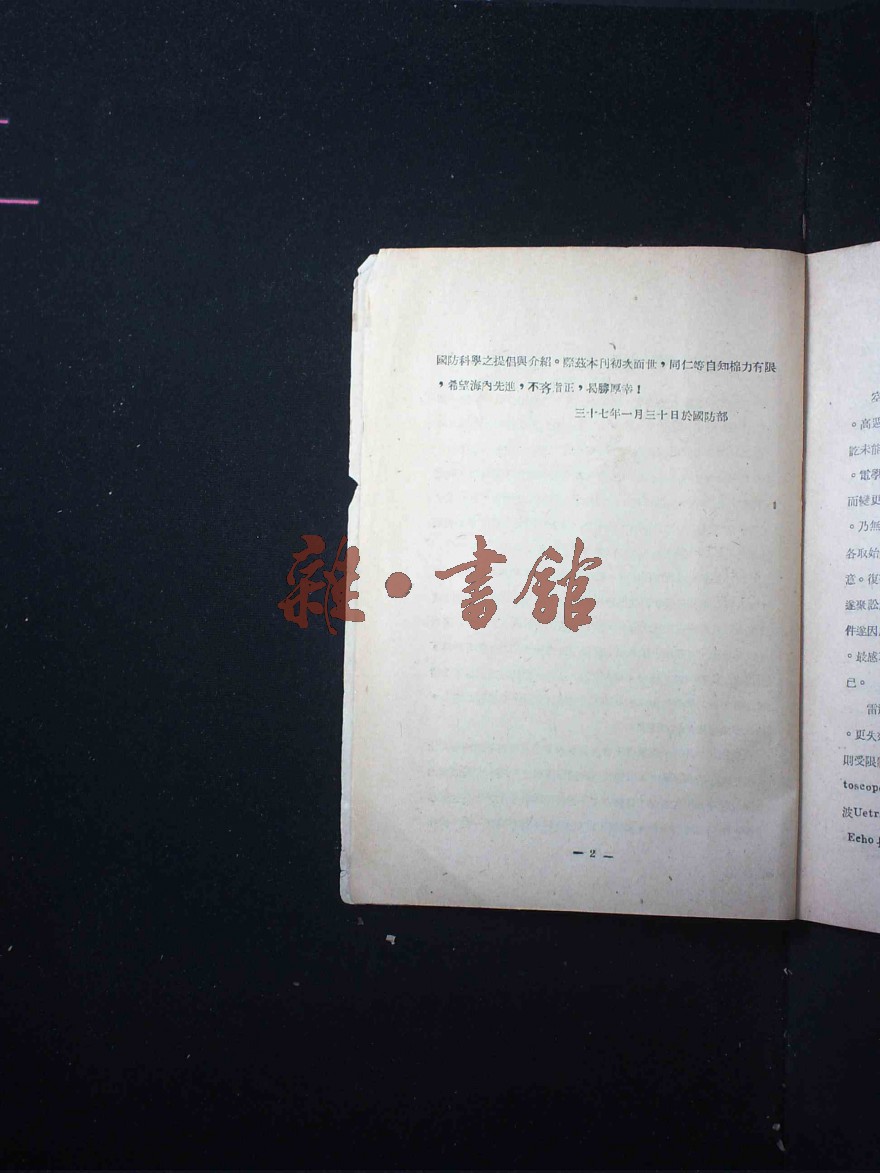 國防科學之提倡與介紹。際茲本刊初次面世,同仁等自知棉力有限
,希望海內先進,不吝指正,曷勝厚幸!
三十七年一月三十日於國防部
雜·書館
— 2 —
。高
訖未前
。電學
而變更
。乃無
各取始
意。復
遂聚訟
件遂因
。最感
已。
雷
。更失
則受限
toscop
波Uetr
Echo